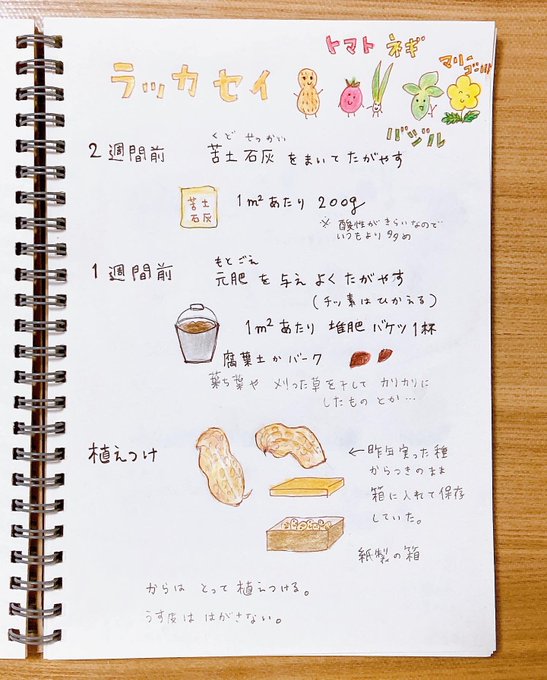 トマト ネギ マリーゴールド
ラッカセイ
バジル
2週間前 苦土石灰をまいてたがやす
くど せっかい
苦土石灰
1m²あたり 200g
※ 酸性がきらいなので
いつもより多め
1週間前 元肥を与えよくたがやす
もとごえ
(チッ素はひかえる)
1m²あたり 堆肥バケツ1杯
腐葉土かバーク
落ち葉や 刈った草を干して カリカリに
したものとか…
植えつけ
←昨年実った種
からつきのまま
箱に入れて保存
していた。
紙製の箱
からは とって植えつける。
うす皮は はがさない。